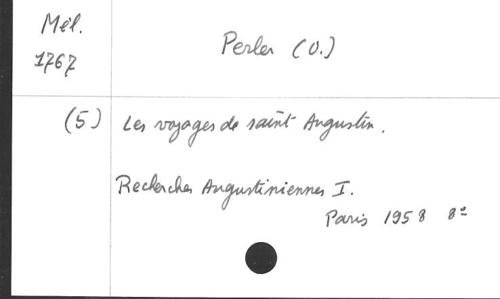 Mél.
1767
Perler (O.)
(5) Les voyages de saint Augustin.
Recherches Augustiniennes I.
Paris 1958 8º